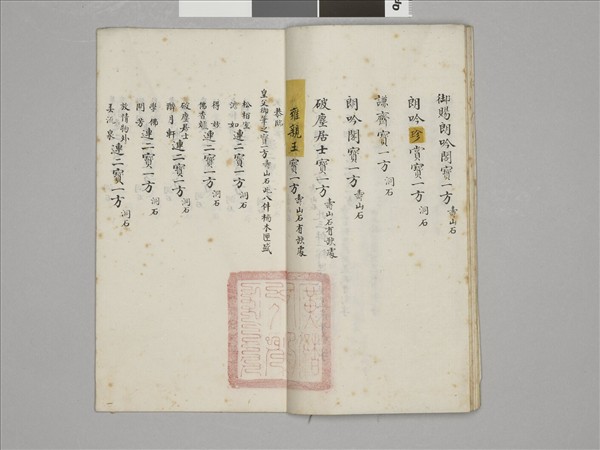 御賜朗吟閣寶一方 壽山石
朗吟珍賞寶一方 洞石
謙齋寶一方 洞石
朗吟閣寶一方 壽山石
破塵居士寶一方 壽山石有欵處
雍親王寶一方 壽山石有欵處
恭臨
皇父御筆之寶一方壽山石此八件楠木匣盛
松柏室 連二寶一方 洞石
得妙 佛香巘 連二寶一方 洞石
破塵居士 醉月軒 連二寶一方 洞石
學佛 問芳 連二寶一方 洞石
放情物外 連二寶一方 洞石